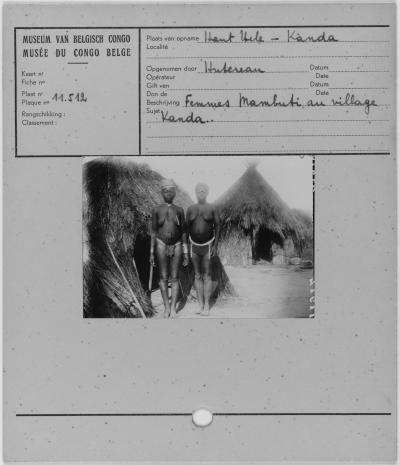 MUSEUM VAN BELGISCH CONGO
MUSÉE DU CONGO BELGE
Kaart nr
Fiche no
Plaat nr
Plaque no 11.512
Rangschikking :
Classement :
Plaats van opname Haut Uele - Kanda
Localité
Opgenomen door Hutereau Datum
Opérateur Date
Gift van Datum
Don de Date
Beschrijving Femmes Mambuti au village
Sujet Kanda..